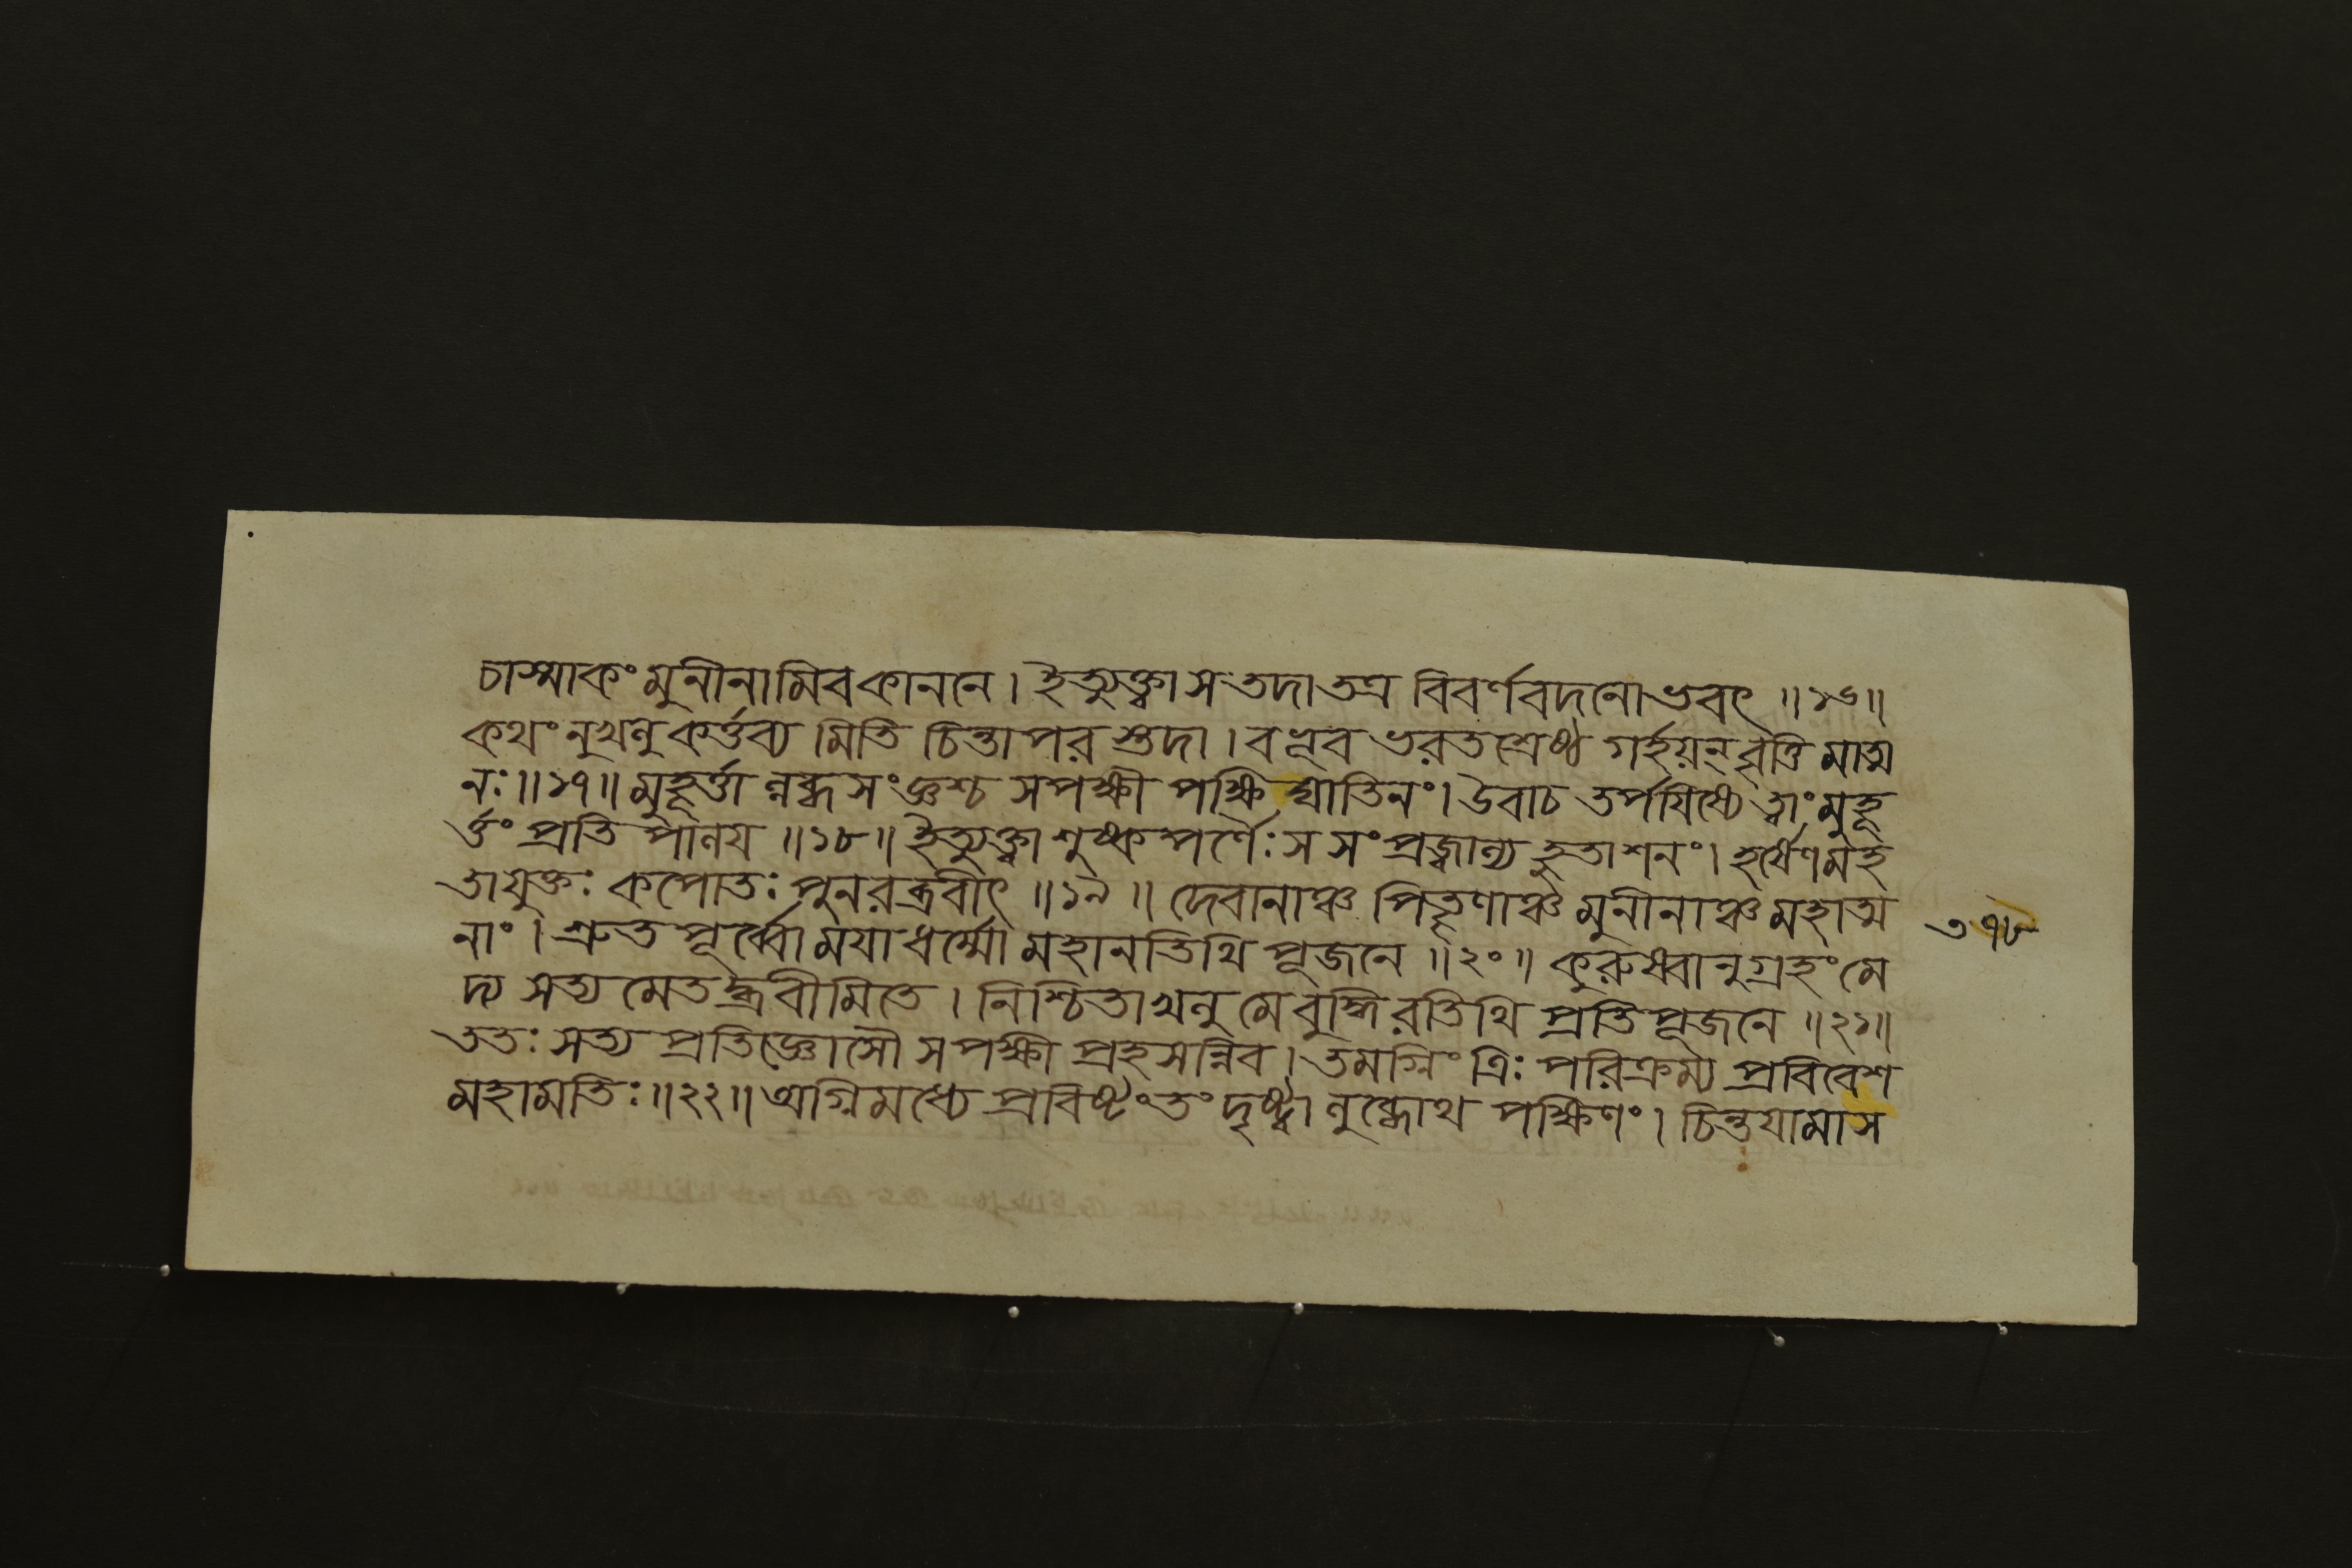 চাস্মাকং মুনীনামিবকাননে। ইত্যুক্ত্বা সতদাতত্র বিবর্ণবদনোভবৎ ॥১৬॥
কথংনুখলুকর্ত্তব্য মিতি চিন্তাপরস্তদা। বভূব ভরতশ্রেষ্ঠ গর্হয়ন্বৃত্তি মাত্ম
নঃ॥১৭॥ মুহূর্ত্তা ল্লব্ধসংজ্ঞশ্চ সপক্ষী পক্ষি ঘাতিনং। উবাচ তর্পযিষ্যেত্বাং মুহূ
র্ত্তং প্রতি পালয ॥১৮॥ ইত্যুক্ত্বা শুষ্কপর্ণৈঃ সসংপ্রজ্বাল্য হুতাশনং। হর্ষেণমহ
তাযুক্তঃ কপোতঃ পুনরব্রবীৎ ॥১৯॥ দেবানাঞ্চ পিতৄণাঞ্চ মুনীনাঞ্চমহাত্ম
৩৭৮
নাং। শ্রুতপূর্ব্বোমযাধর্ম্মো মহানতিথি পূজনে ॥২০॥ কুরুষ্বানুগ্রহংমে
দ্য সত্যমেতদ্ব্রবীমিতে। নিশ্চিতাখলু মেবুদ্ধিরতিথি প্রতিপূজনে ॥২১॥
ততঃ সত্য প্রতিজ্ঞোসৌ সপক্ষী প্রহসন্নিব। তমগ্নিং ত্রিঃ পরিক্রম্য প্রবিবেশ
মহামতিঃ॥২২॥ অগ্নিমধ্যে প্রবিষ্টংতং দৃষ্ট্বা লুব্ধোথ পক্ষিণং। চিন্তযামাস